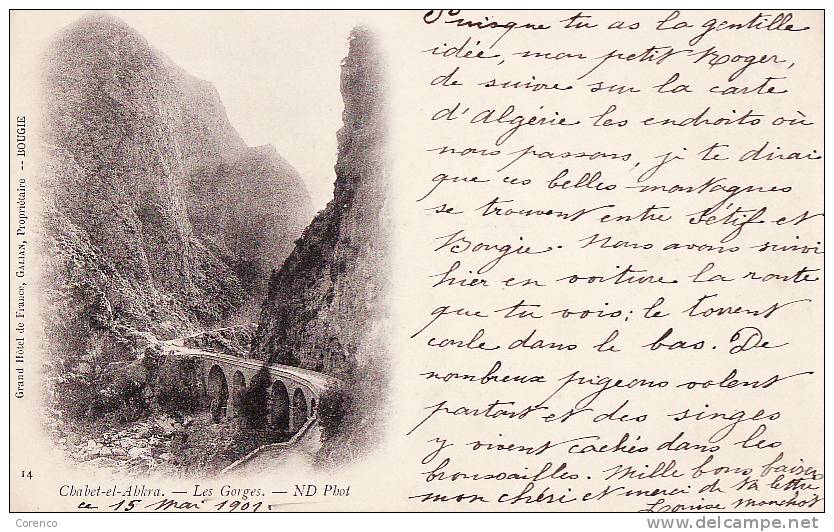 Grand Hôtel de France, GALIAN, Propriétaire -- BOUGIE
14
Chabet-el-Ahkra. — Les Gorges. — ND Phot
ce 15 Mai 1901.
Puisque tu as la gentille
idée, mon petit Roger,
de suivre sur la carte
d'Algérie les endroits où
nous passons, je te dirai
que ces belles montagnes
se trouvent entre Sétif et
Bougie. Nous avons suivi
hier en voiture la route
que tu vois; le torrent
coule dans le bas. De
nombreux pigeons volent
partout et des singes
y vivent cachés dans les
broussailles. Mille bons baisers
mon chéri et merci de ta lettre
Louise
Corenco
www.delcampe.net